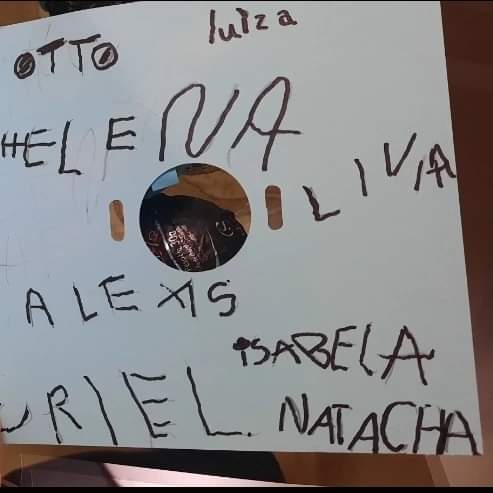 luiza
OTTO
HELENA
LIVIA
ALEXIS
ISABELA
URIEL.
NATACHA